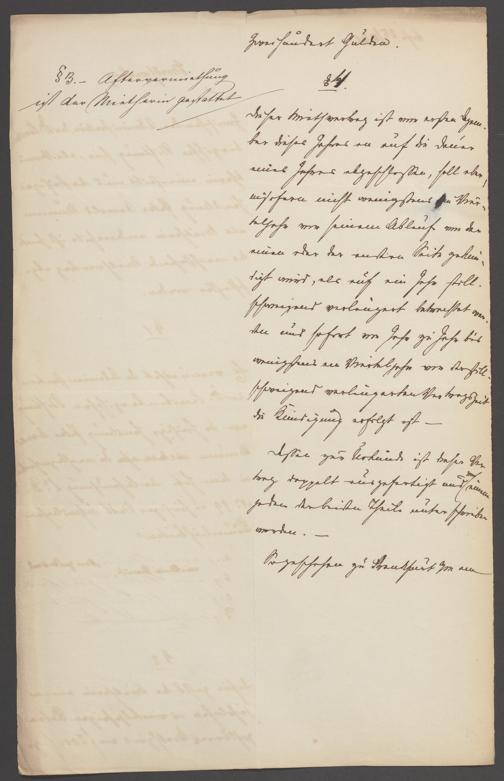 zweihundert Gulden.
§3. – Aftervermiethung
ist der Mietherin gestattet
§4.
Dieser Miethvertrag ist vom ersten Dezem-
ber dieses Jahres an auf die Dauer
eines Jahres abgeschlossen, soll aber,
insofern nicht wenigstens ein Vier-
teljahr vor seinem Ablauf von der
einen oder der andern Seite gekün-
digt wird, als auf ein Jahr still-
schweigend verlängert betrachtet wer-
den und sofort von Jahr zu Jahr bis
wenigstens ein Vierteljahr vor der still-
schweigend verlängerten Vertragszeit
die Kündigung erfolgt ist –
Dessen zur Urkunde ist dieser Ver-
trag doppelt ausgefertigt und von einem
jeden der beiden Theile unterschrieben
worden. –
So geschehen zu Frankfurt am